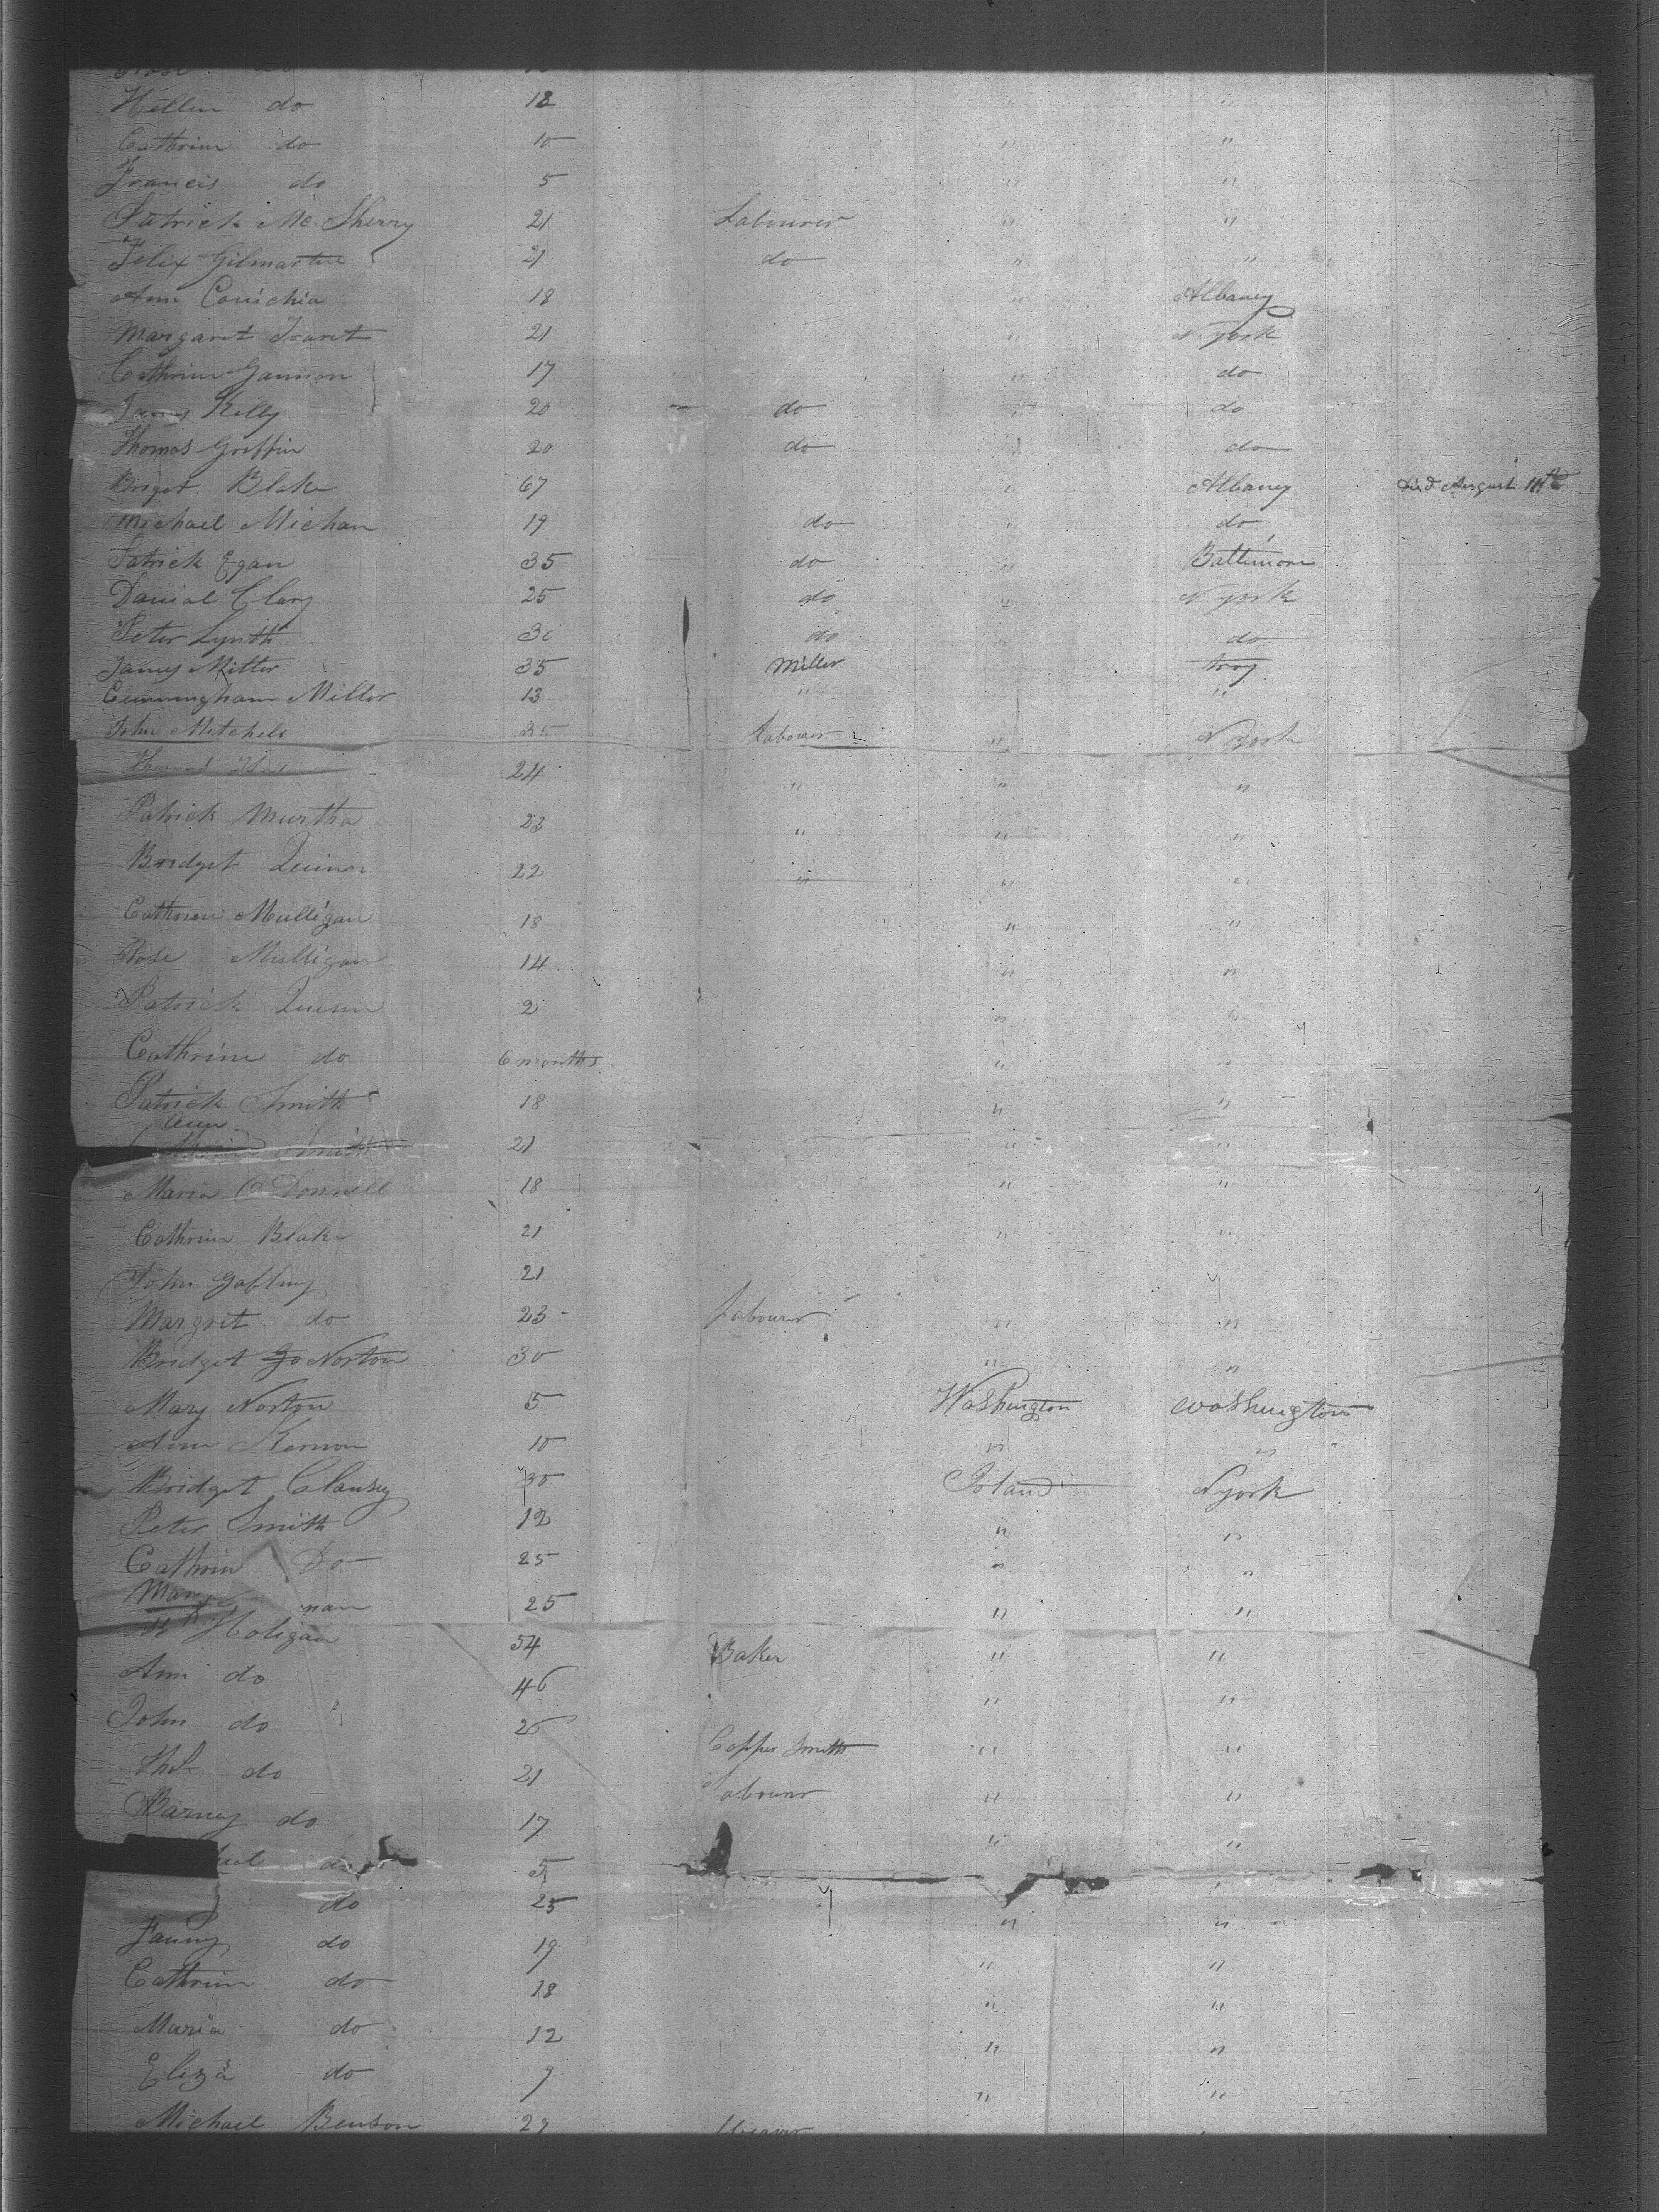 Hellen do 18 " "
Cathrin do 10 " "
Francis do 5 " "
Patrick Mc Sherry 21 Labourer " "
Felix Gilmartin 21 do " "
Ann 18 " Albaney
Margaret 21 " N york
Cathrin Gannon 17 " do
James Kelly 20 do " do
Thomas Griffin 20 do " do
Briget Blake 67 " Albaney died August 11th
Michael Michan 19 do " do
Patrick Egan 35 do " Baltimore
Danial Clary 25 do " N york
Peter Lynth 30 do do
James Miller 35 Miller troy
Cunningham Miller 13 " "
John Mitchels 35 Labourer " N york
24 " " "
Patrick Murtha 23 " " "
Bridget Quinn 22 " " "
Cathrien Mulligan 18 " "
Rose Mulligan 14 " "
Patrick Quinn 2 " "
Cathrine do 6 months " "
Patrick Smith 18 " "
Ann
Smith 21 " "
Maria O Donnell 18 " "
Cathrin Blake 21 " "
John Goffney 21
Margrit do 23 Labourer " "
Bridget Norton 30 " "
Mary Norton 5 Washington Washington
Ann Kernon 10 " "
Bridget Clansey 30 Island N york
Peter Smith 12 " "
Cathrin Do 25 " "
Mary nan 25 " "
Holigan 54 Baker " "
Ann do 46 " "
John do 26 Copper Smith " "
Thos do 21 Labourer " "
Barney do 17 " "
do 5
do 25 " "
Fanny do 19 " "
Cathrine do 18 " "
Maria do 12 " "
Eliza do 9 " "
Michael Benson 27